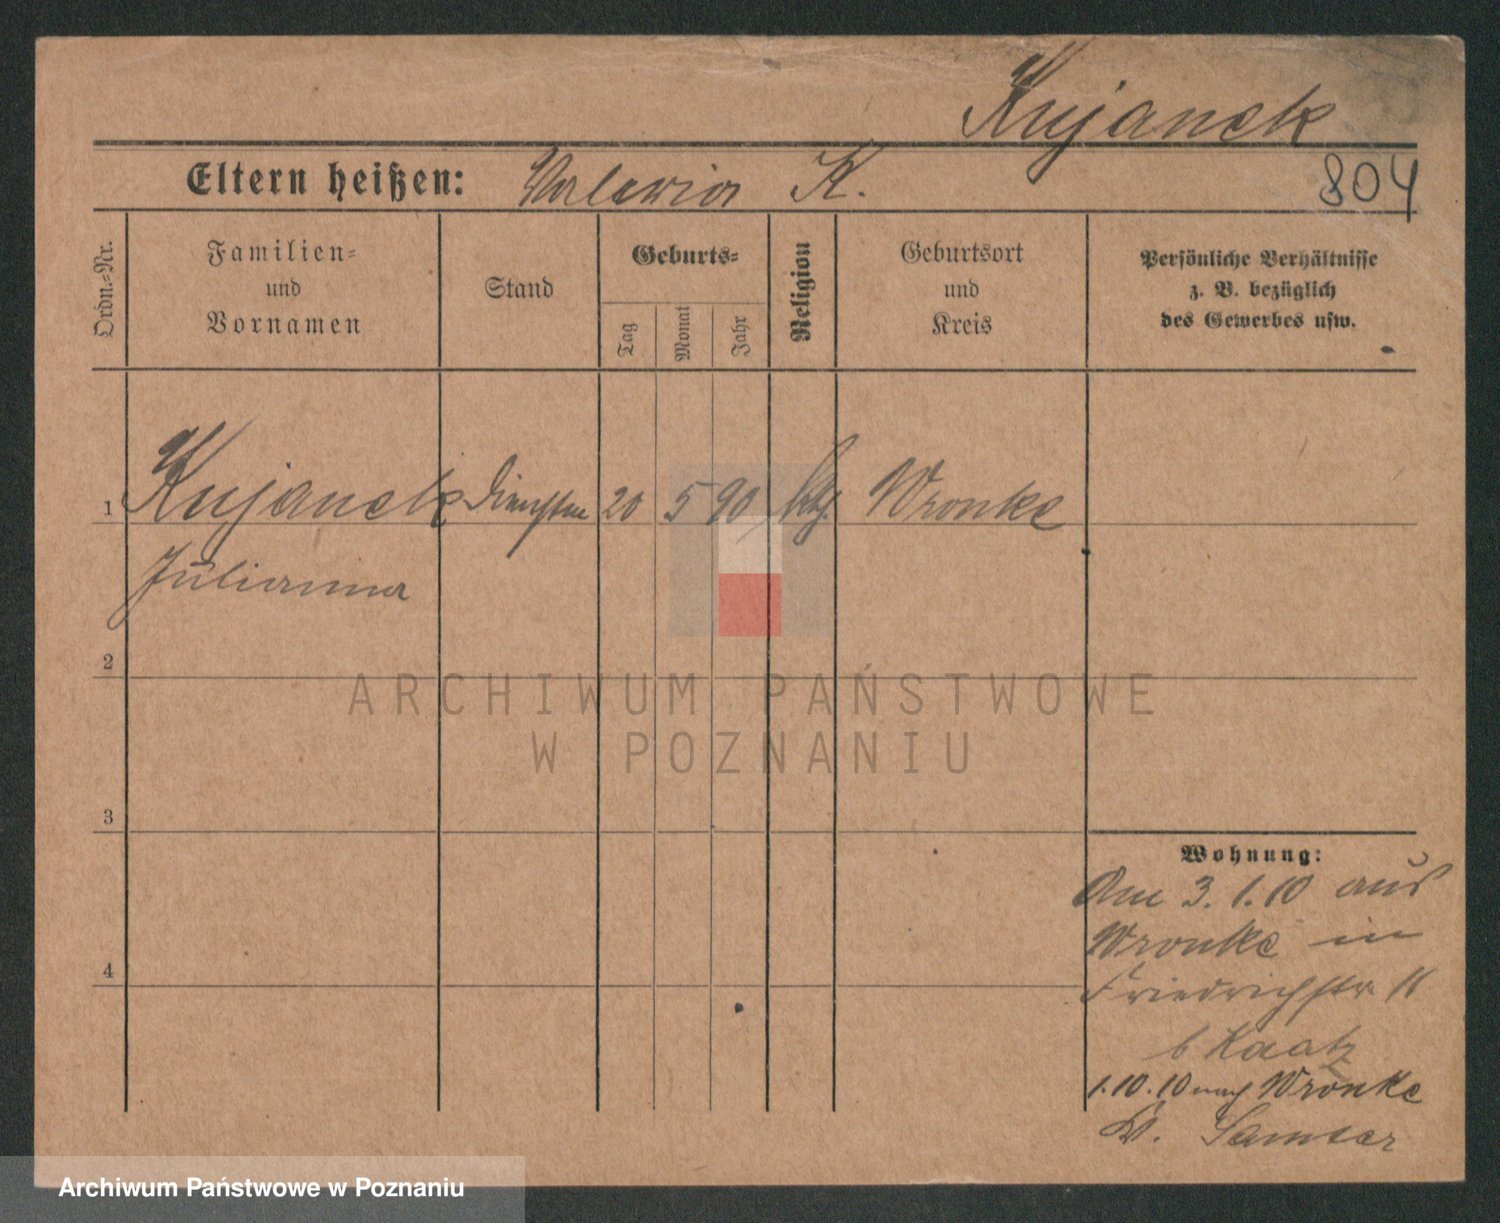 Kujanek
Eltern heißen: Valeria K. 804
Ordn.-Nr.
Familien-
und
Vornamen
Stand
Geburts-
Tag
Monat
Jahr
Religion
Geburtsort
und
Kreis
Persönliche Verhältnisse
z. B. bezüglich
des Gewerbes usw.
1 Kujanek 20 5 90 kth. Wronke
Julianna
2
ARCHIWUM PAŃSTWOWE
W POZNANIU
3
Wohnung:
Am 3.1.10 aus
Wronke in
4
Friedrichstr 11
b Kaatz
1.10.10 nach Wronke
Kr. Samter
Archiwum Państwowe w Poznaniu